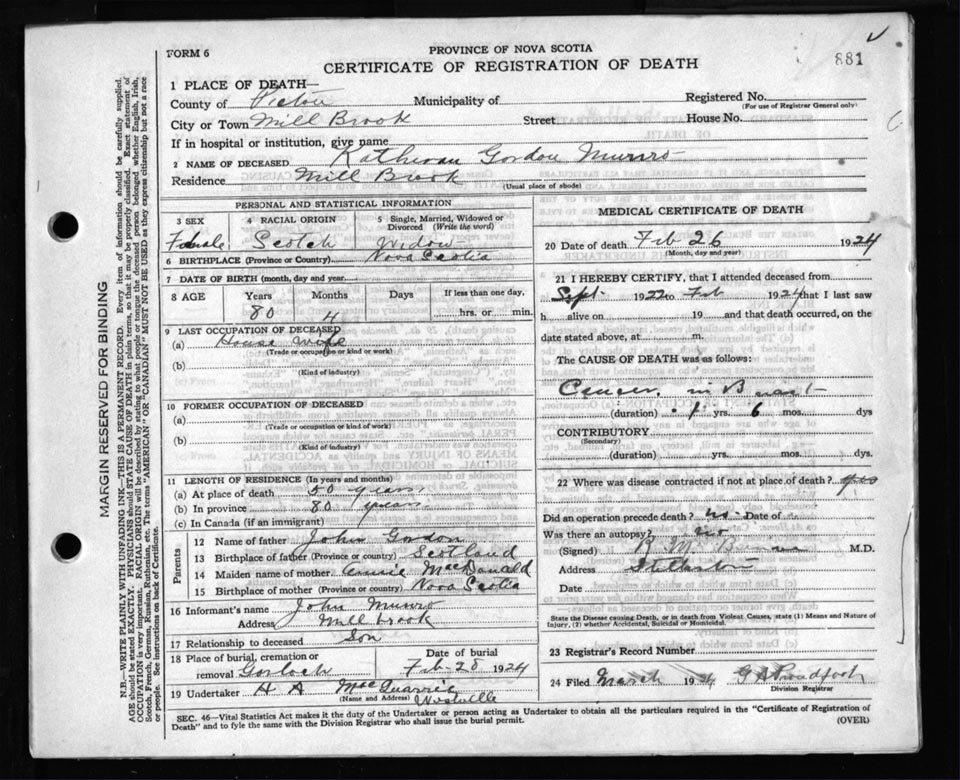 881
FORM 6
PROVINCE OF NOVA SCOTIA
CERTIFICATE OF REGISTRATION OF DEATH
1 PLACE OF DEATH—
County of Pictou Municipality of Registered No.
(For use of Registrar General only)
City or Town Mill Brook Street House No.
If in hospital or institution, give name
2 NAME OF DECEASED Gordon Munro
Residence Mill Brook
(Usual place of abode)
PERSONAL AND STATISTICAL INFORMATION
3 SEX
Female
4 RACIAL ORIGIN
Scotch
5 Single, Married, Widowed or Divorced (Write the word)
Widow
6 BIRTHPLACE (Province or Country) Nova Scotia
7 DATE OF BIRTH (month, day and year)
8 AGE Years Months Days If less than one day,
80 4 hrs. or min.
9 LAST OCCUPATION OF DECEASED
(a) House Wife
(Trade or occupation or kind or work)
(b)
(Kind of industry)
10 FORMER OCCUPATION OF DECEASED
(a)
(Trade or occupation or kind of work)
(b)
(Kind of industry)
11 LENGTH OF RESIDENCE (In years and months)
(a) At place of death 50 years
(b) In province 80 years
(c) In Canada (if an immigrant)
Parents
12 Name of father John Gordon
13 Birthplace of father (Province or country) Scotland
14 Maiden name of mother Annie MacDonald
15 Birthplace of mother (Province or country) Nova Scotia
16 Informant's name John Munro
Address Mill brook
17 Relationship to deceased Son
18 Place of burial, cremation or removal Gairloch
Date of burial Feb 28 1924
19 Undertaker H A MacQuarrie
(Name and Address) Westville
MEDICAL CERTIFICATE OF DEATH
20 Date of death Feb 26 1924
(Month, day and year)
21 I HEREBY CERTIFY, that I attended deceased from
Sept 1922 to Feb 1924 that I last saw
h alive on 19 and that death occurred, on the
date stated above, at m.
The CAUSE OF DEATH was as follows:
Cancer in Breast
(duration) 1 yrs. 6 mos. dys
CONTRIBUTORY
(Secondary)
(duration) yrs. mos. dys.
22 Where was disease contracted if not at place of death?
Did an operation precede death? no Date of
Was there an autopsy? no
(Signed) M.D.
Address Stellarton
Date
State the Disease causing Death, or in death from Violent Causes, state (1) Means and Nature of
Injury, (2) whether Accidental, Suicidal or Homicidal.
23 Registrar's Record Number
24 Filed March 1924
Division Registrar
SEC. 46—Vital Statistics Act makes it the duty of the Undertaker or person acting as Undertaker to obtain all the particulars required in the "Certificate of Registration of
Death" and to fyle the same with the Division Registrar who shall issue the burial permit.
(OVER)
MARGIN RESERVED FOR BINDING
N.B.—WRITE PLAINLY WITH UNFADING INK—THIS IS A PERMANENT RECORD. Every item of information should be carefully supplied.
AGE should be stated EXACTLY. PHYSICIANS should STATE CAUSE OF DEATH in plain terms, so that it may be properly classified. Exact statement of
OCCUPATION is very important. RACIAL ORIGIN will be described by stating to what people or tongue the deceased person belonged whether English, Irish,
Scotch, French, German, Russian, Ruthenian, etc. The terms "AMERICAN" OR "CANADIAN" MUST NOT BE USED as they express citizenship but not a race
or people. See instructions on back of Certificate.